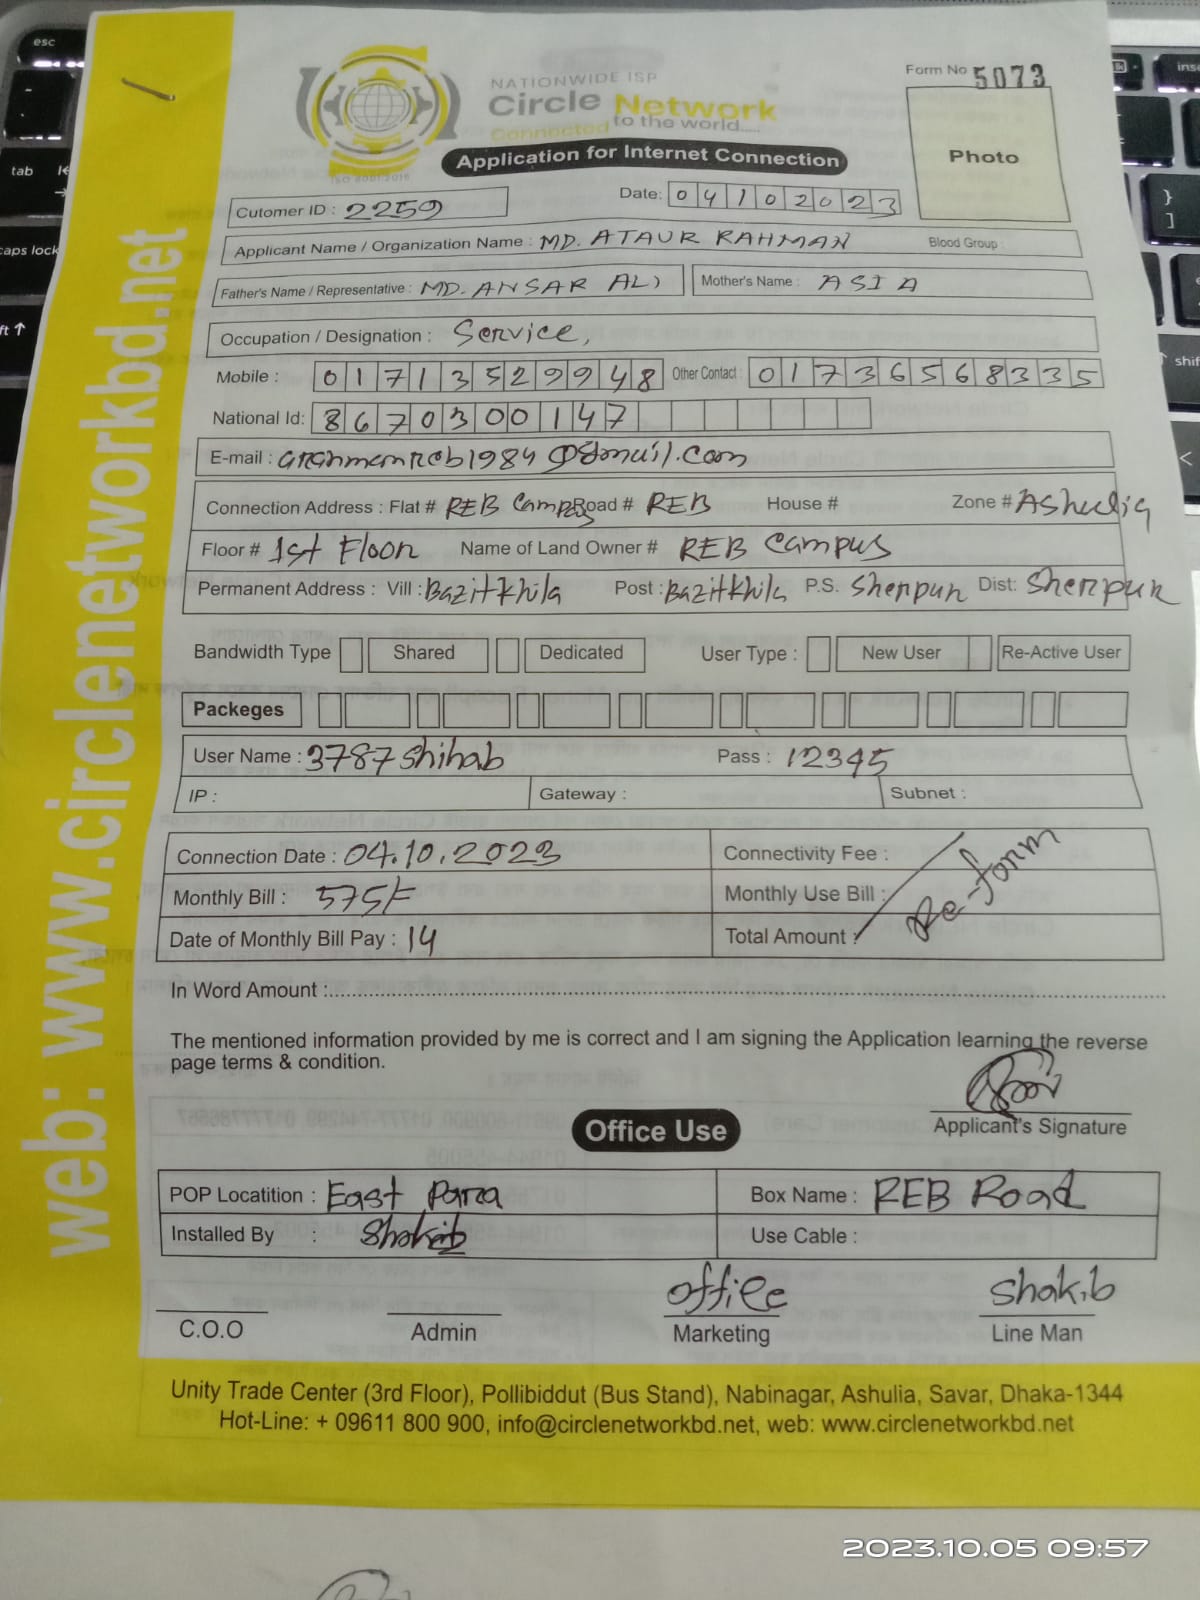 Form No 5073
NATIONWIDE ISP
Circle Network
Connected to the world.....
ISO 9001:2015
Application for Internet Connection
Photo
Cutomer ID : 2259
Date: 04102023
Applicant Name / Organization Name : MD. ATAUR RAHMAN Blood Group :
Father's Name / Representative : MD. ANSAR ALI Mother's Name : ASIA
Occupation / Designation : Service,
Mobile : 01713529948 Other Contact : 01736568335
National Id: 8670300147
E-mail : arahmanreb1984@gmail.com
Connection Address : Flat # REB Campas Road # REB House # Zone # Ashulia
Floor # 1st Floor Name of Land Owner # REB Campus
Permanent Address : Vill : Bazitkhila Post : Bazitkhila P.S. Sherpur Dist: Sherpur
Bandwidth Type Shared Dedicated User Type : New User Re-Active User
Packeges
User Name : 3787shihab Pass : 12345
IP : Gateway : Subnet :
Connection Date : 04.10.2023 Connectivity Fee :
Monthly Bill : 575/= Monthly Use Bill :
Re-form
Date of Monthly Bill Pay : 14 Total Amount :
In Word Amount :
The mentioned information provided by me is correct and I am signing the Application learning the reverse
page terms & condition.
Applicant's Signature
Office Use
POP Locatition : East Para Box Name : REB Road
Installed By : Shakib Use Cable :
office Shakib
C.O.O Admin Marketing Line Man
Unity Trade Center (3rd Floor), Pollibiddut (Bus Stand), Nabinagar, Ashulia, Savar, Dhaka-1344
Hot-Line: + 09611 800 900, info@circlenetworkbd.net, web: www.circlenetworkbd.net
web: www.circlenetworkbd.net
esc
tab
caps lock
shift
2023.10.05 09:57